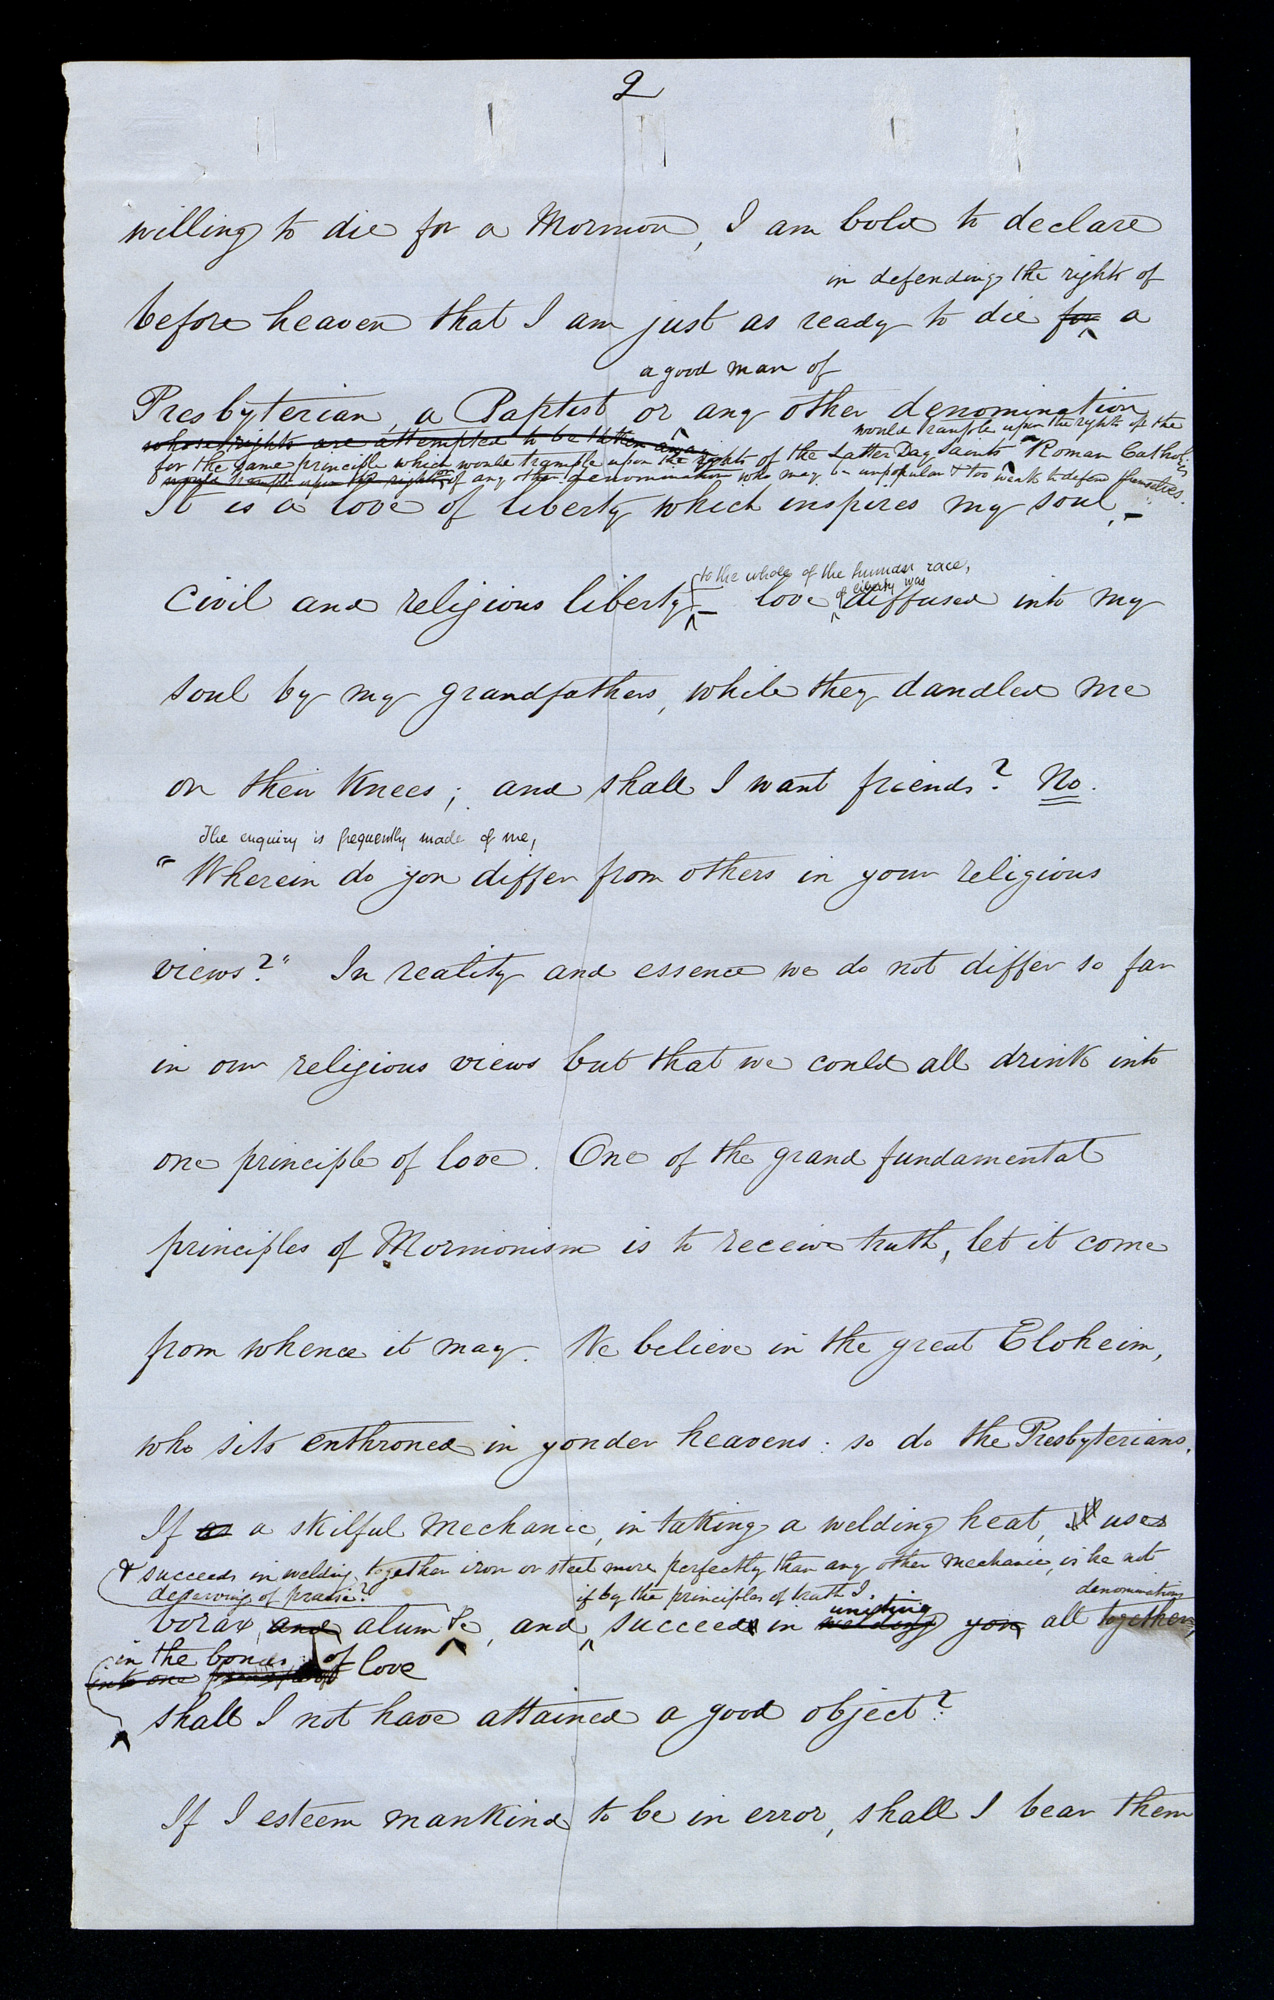 2
willing to die for a Mormon, I am bold to declare
in defending the rights of
before heaven that I am just as ready to die for a
a good man of
Presbyterian, a Baptist or any other denomination
whose rights are attempted to be taken away
would trample upon the rights of the
for the same principle which would trample upon the rights of the Latter Day Saints Roman Catholics
would trample upon the rights or of any other denomination who may be unpopular & too weak to defend themselves.
It is a love of liberty which inspires my soul, -
to the whole of the human race,
of liberty was
civil and religious liberty - love diffused into my
soul by my grandfathers, while they dandled me
on their knees; and shall I want friends? No.
The enquiry is frequently made of me,
"Wherein do you differ from others in your religious
views?" In reality and essence we do not differ so far
in our religious views but that we could all drink into
one principle of love. One of the grand fundamental
principles of Mormonism is to receive truth, let it come
from whence it may. We believe in the great Eloheim,
who sits enthroned in yonder heavens: so do the Presbyterians.
If as a skilful mechanic, in taking a welding heat, uses
& succeeds in welding together iron or steel more perfectly than any other mechanic, is he not
deserving of praise? if by the principles of truth I uniting denominations
borax, and alum &c, and succeed in welding you all together,
in the bonds of love
into one
shall I not have attained a good object?
If I esteem mankind to be in error, shall I bear them